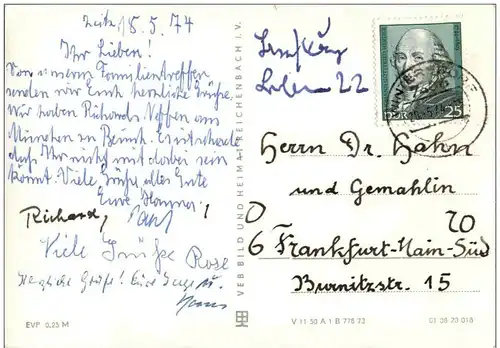 Zeitz 18.5.74
Ihr Lieben!
Von unserem Familientreffen
senden wir Euch herzliche Grüße.
Wir haben Richards Neffen aus
München zu Besuch. Es ist schade
daß Ihr nicht mit dabei sein
könnt. Viele Grüße alles Gute
Eure
Richard,
Viele Grüße Rose
Herzliche Grüße! Eure u.
Hans
EVP 0,25 M
VEB BILD UND HEIMAT REICHENBACH I. V.
22
DDR 25
Herrn Dr. Hahn
und Gemahlin
D 70
6 Frankfurt-Main-Süd
Burnitzstr. 15
V 11 50 A 1 B 778 73